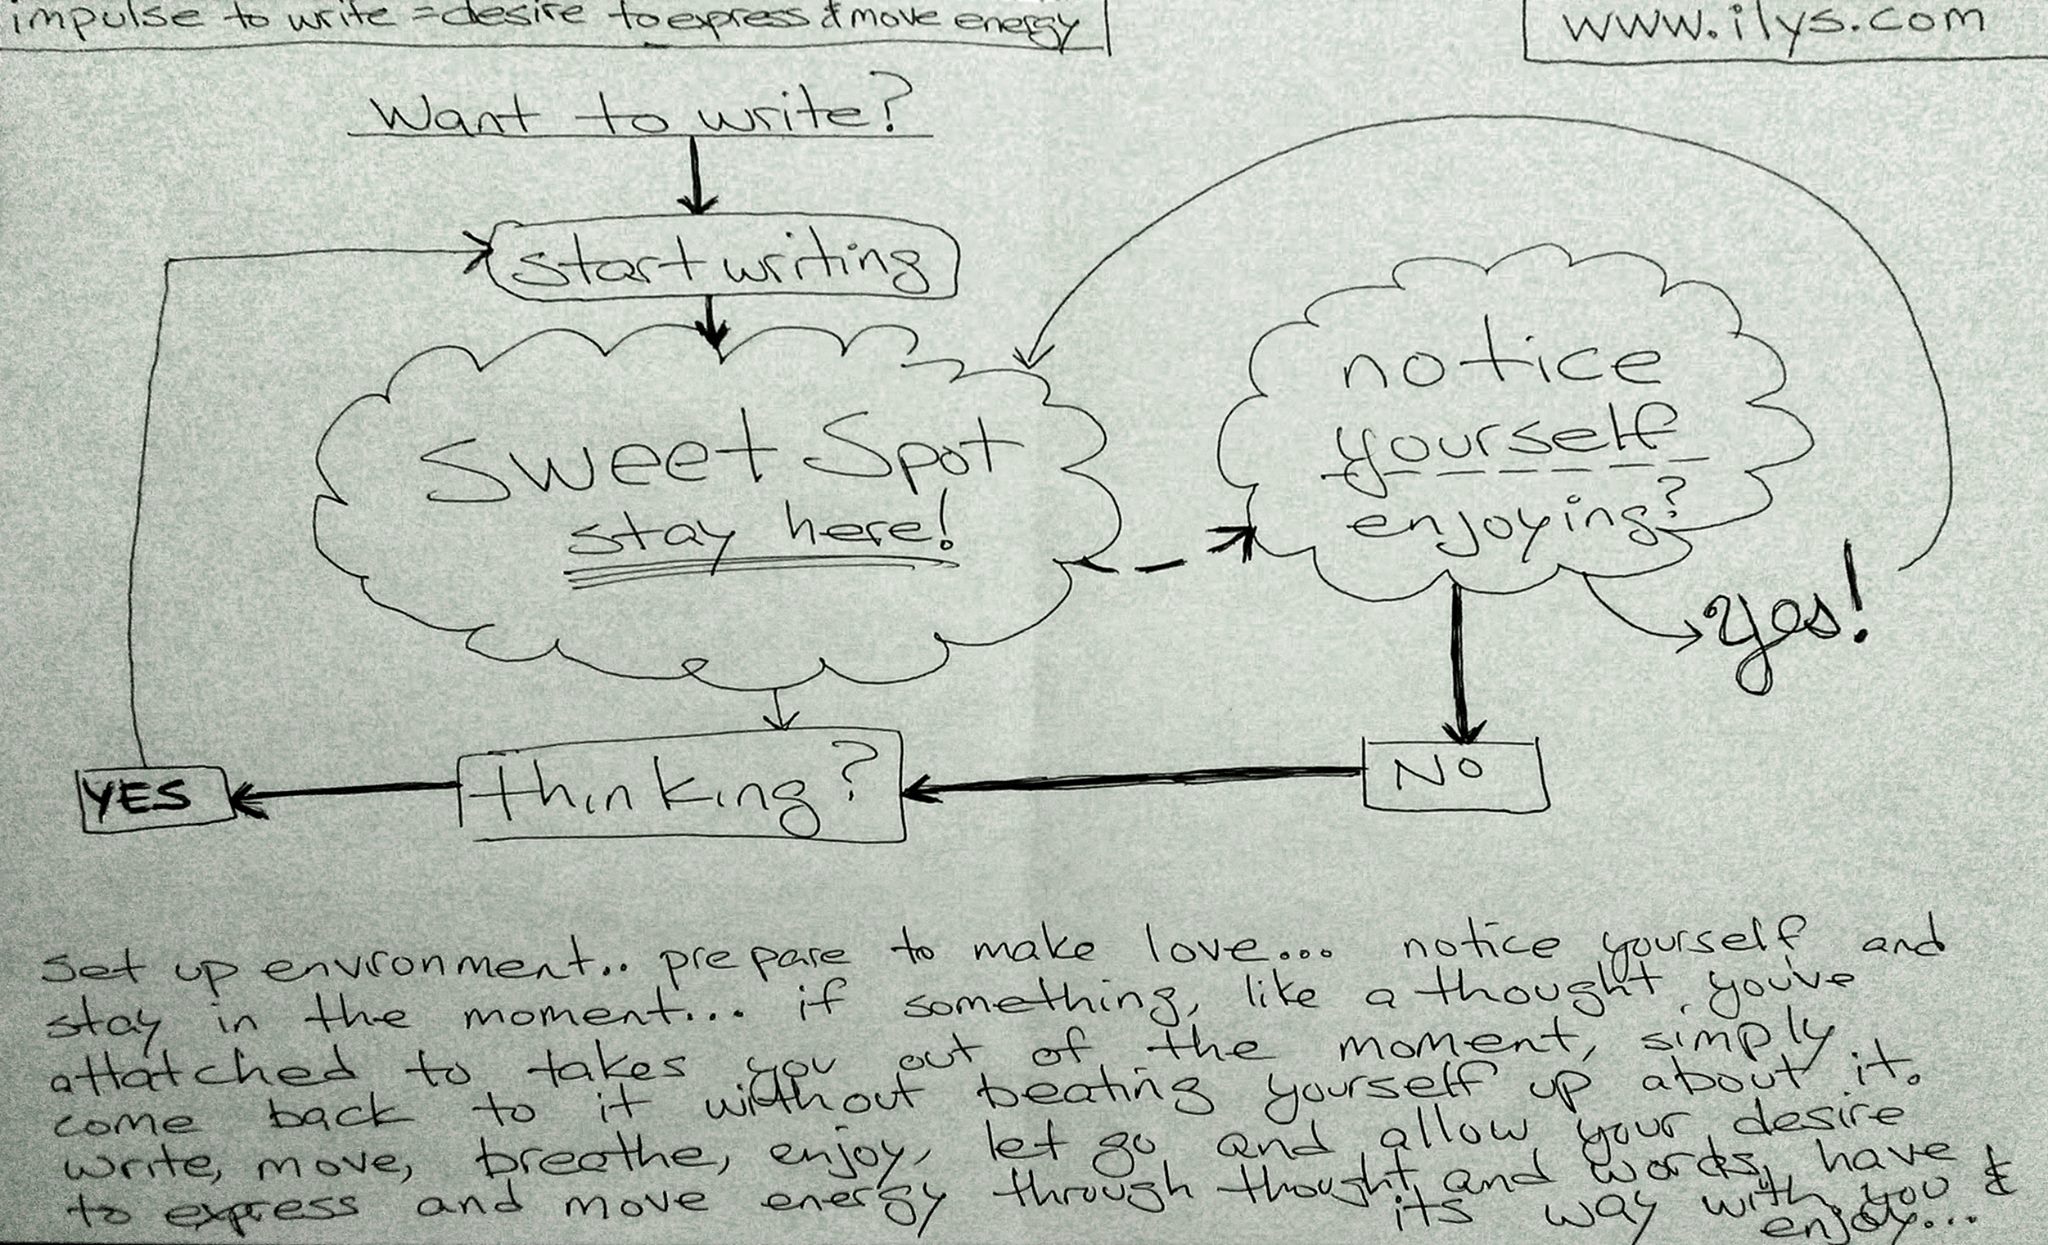 impulse to write = desire to express & move energy
www.ilys.com
Want to write?
start writing
Sweet Spot
stay here!
notice
yourself
enjoying?
Yes!
NO
thinking?
YES
Set up environment.. prepare to make love... notice yourself and
stay in the moment... if something, like a thought, you've
attatched to takes you out of the moment, simply
come back to it without beating yourself up about it.
write, move, breathe, enjoy, let go and allow your desire
to express and move energy through thought and words, have
its way with you &
enjoy...